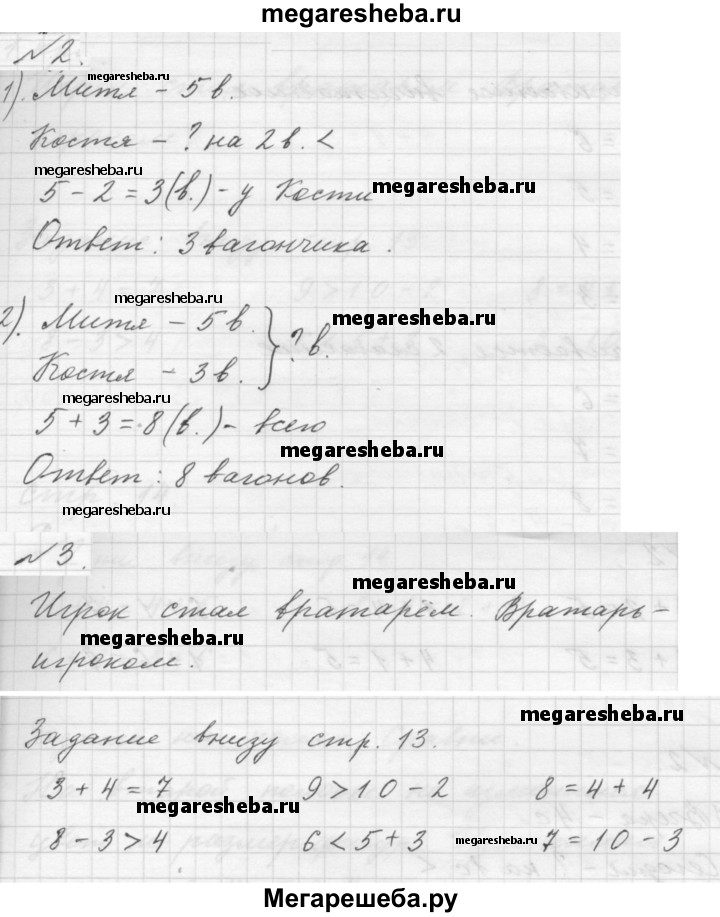 megaresheba.ru
№2.
megaresheba.ru
1). Митя – 5 в.
Костя – ? на 2 в. <
megaresheba.ru
5 – 2 = 3 (в.) – у Кости
megaresheba.ru
Ответ: 3 вагончика.
megaresheba.ru
2). Митя – 5 в.
megaresheba.ru
? в.
Костя – 3 в.
megaresheba.ru
5 + 3 = 8 (в.) – всего
megaresheba.ru
Ответ: 8 вагонов.
megaresheba.ru
№3.
megaresheba.ru
Игрок стал вратарём. Вратарь –
megaresheba.ru
игроком.
megaresheba.ru
Задание внизу стр. 13.
3 + 4 = 7 9 > 10 – 2 8 = 4 + 4
megaresheba.ru
8 – 3 > 4 6 < 5 + 3 megaresheba.ru 7 = 10 – 3
Мегарешеба.ру